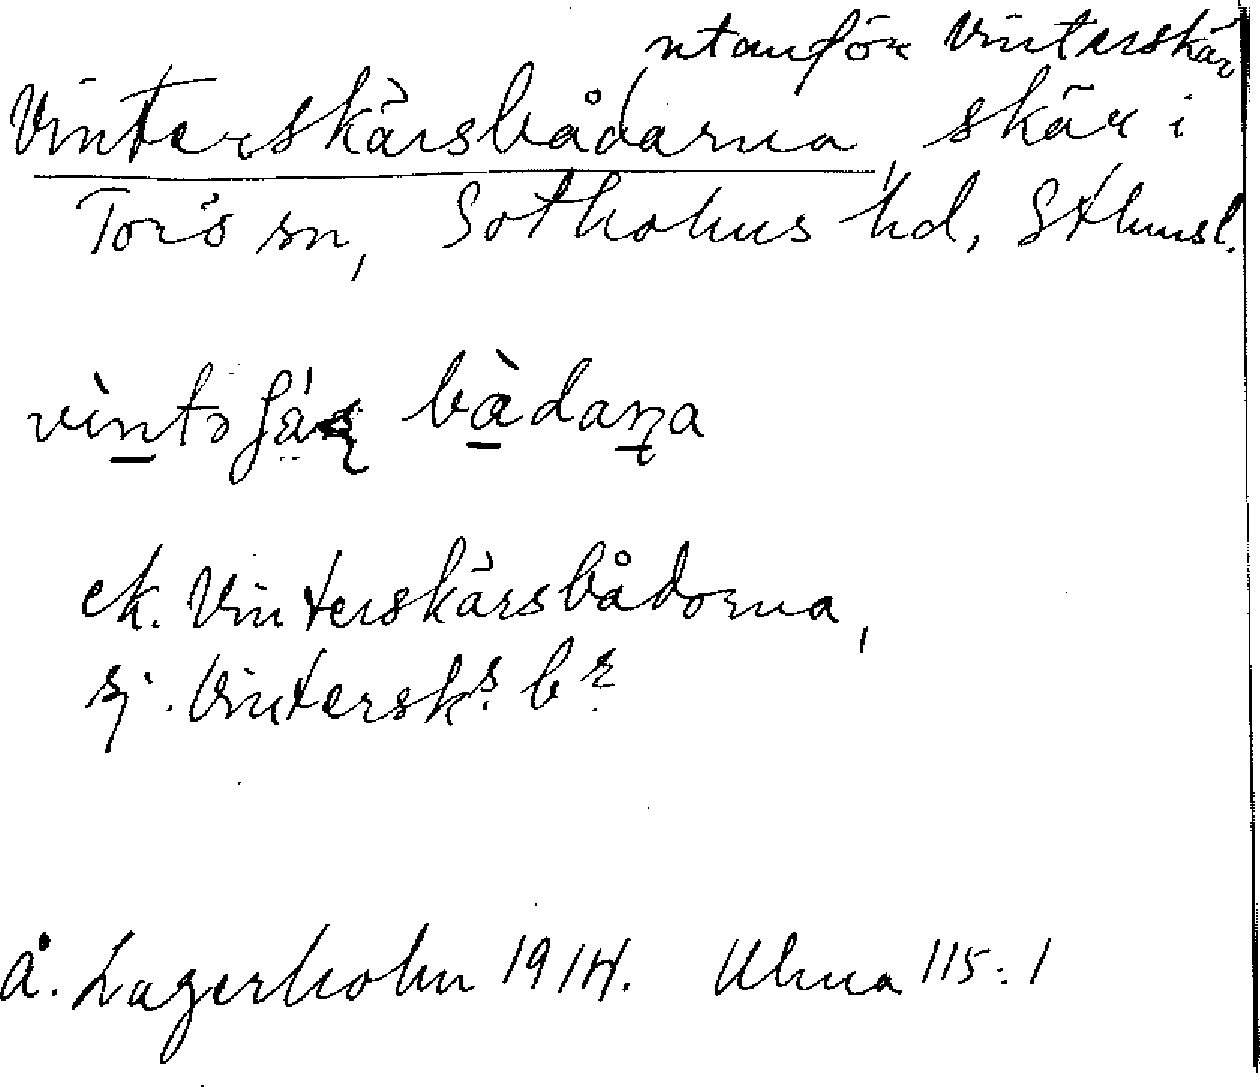 utanför Vinterskär
Vinterskärsbådarna, skär i
Torö sn, Sotholms hd, Sthmsl.
bådana
ek. Vinterskärsbådorna,
sj. Vintersk:s b:r
Å. Lagerholm 1914. Ulma 115:1